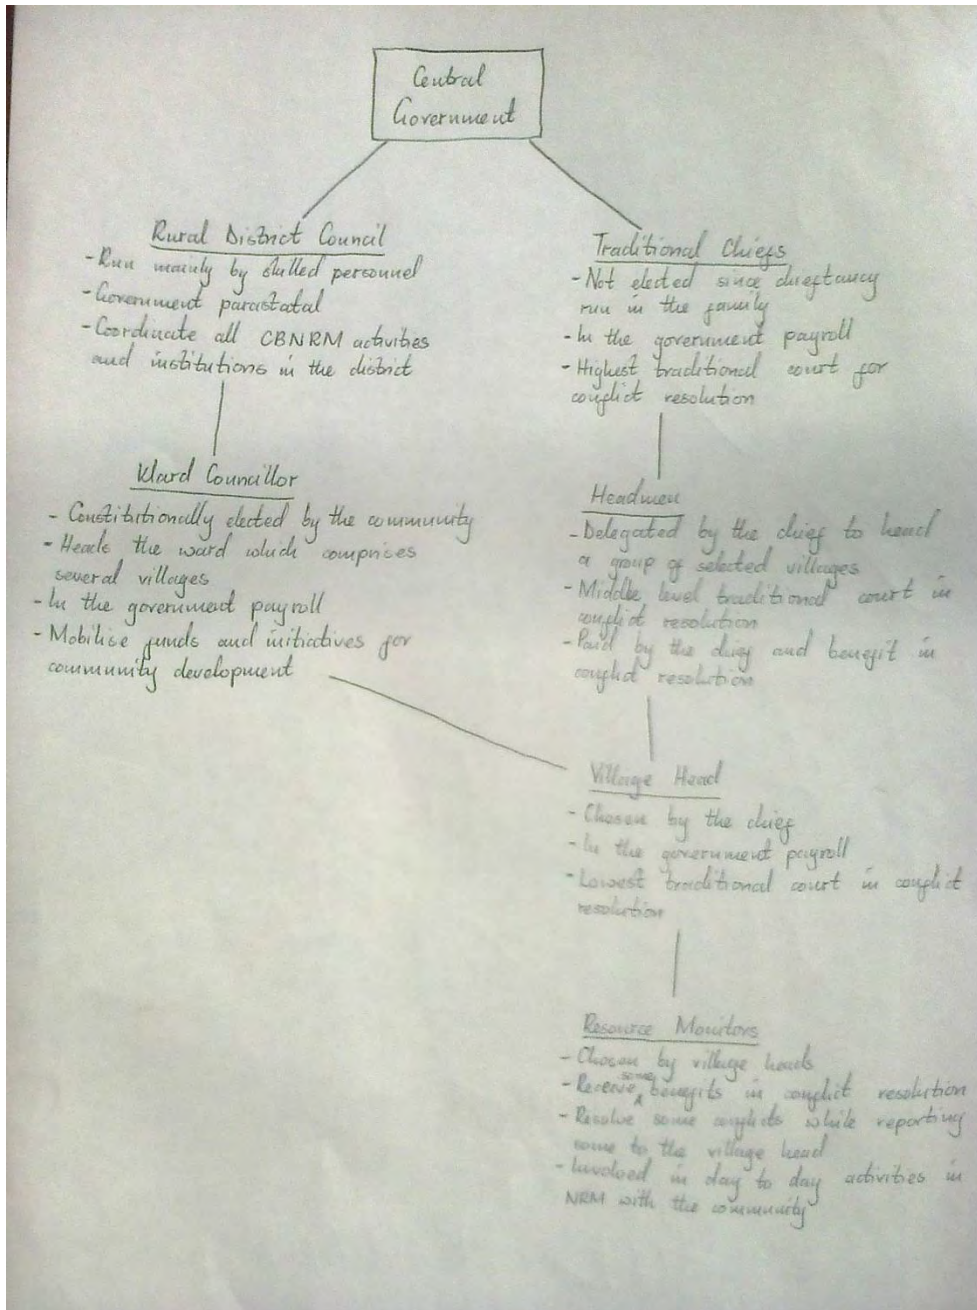 Central
Government
Rural District Council
- Run mainly by skilled personnel
- Government parastatal
- Coordinate all CBNRM activities
and institutions in the district
Ward Councillor
- Constitutionally elected by the community
- Heads the ward which comprises
several villages
- In the government payroll
- Mobilise funds and initiatives for
community development
Traditional Chiefs
- Not elected since chieftancy
run in the family
- In the government payroll
- Highest traditional court for
conflict resolution
Headmen
- Delegated by the chief to head
a group of selected villages
- Middle level traditional court in
conflict resolution
- Paid by the chief and benefit in
conflict resolution
Village Head
- Chosen by the chief
- In the government payroll
- Lowest traditional court in conflict
resolution
Resource Monitors
- Chosen by village heads
- Receive some benefits in conflict resolution
- Resolve some conflicts while reporting
some to the village head
- Involved in day to day activities in
NRM with the community